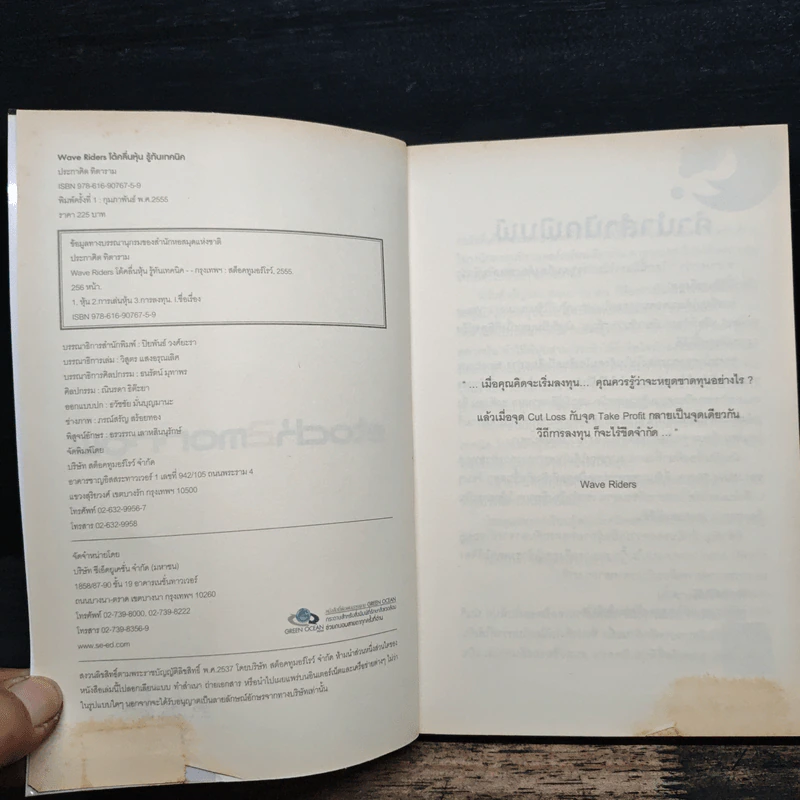 Wave Riders โต้คลื่นหุ้น รู้ทันเทคนิค
ประกาศิต ทิตาราม
ISBN 978-616-90767-5-9
พิมพ์ครั้งที่ 1 : กุมภาพันธ์ พ.ศ.2555
ราคา 225 บาท
ข้อมูลทางบรรณานุกรมของสำนักหอสมุดแห่งชาติ
ประกาศิต ทิตาราม
Wave Riders โต้คลื่นหุ้น รู้ทันเทคนิค - - กรุงเทพฯ : สต็อคทูมอร์โรว์, 2555.
256 หน้า.
1. หุ้น 2.การเล่นหุ้น 3.การลงทุน. I.ชื่อเรื่อง
ISBN 978-616-90767-5-9
บรรณาธิการสำนักพิมพ์ : ปิยพันธ์ วงศ์ยะรา
บรรณาธิการเล่ม : วิสูตร แสงอรุณเลิศ
บรรณาธิการศิลปกรรม : ธนรัตน์ มุทาพร
ศิลปกรรม : ณินรดา ธิติยา
ออกแบบปก : ธวัชชัย มั่นบุญมานะ
ช่างภาพ : ภรณ์ดรัญ สร้อยทอง
พิสูจน์อักษร : อรวรรณ เลาหสินนุรักษ์
จัดพิมพ์โดย
บริษัท สต็อคทูมอร์โรว์ จำกัด
อาคารชาญอิสสระทาวเวอร์ 1 เลขที่ 942/105 ถนนพระราม 4
แขวงสุริยวงศ์ เขตบางรัก กรุงเทพฯ 10500
โทรศัพท์ 02-632-9956-7
โทรสาร 02-632-9958
จัดจำหน่ายโดย
บริษัท ซีเอ็ดยูเคชั่น จำกัด (มหาชน)
1858/87-90 ชั้น 19 อาคารเนชั่นทาวเวอร์
ถนนบางนา-ตราด เขตบางนา กรุงเทพฯ 10260
โทรศัพท์ 02-739-8000, 02-739-8222
โทรสาร 02-739-8356-9
www.se-ed.com
GREEN OCEAN
สงวนลิขสิทธิ์ตามพระราชบัญญัติลิขสิทธิ์ พ.ศ.2537 โดยบริษัท สต็อคทูมอร์โรว์ จำกัด ห้ามนำส่วนหนึ่งส่วนใดของ
หนังสือเล่มนี้ไปลอกเลียนแบบ ทำสำเนา ถ่ายเอกสาร หรือนำไปเผยแพร่บนอินเตอร์เน็ตและเครือข่ายต่างๆ ไม่ว่า
ในรูปแบบใดๆ นอกจากจะได้รับอนุญาตเป็นลายลักษณ์อักษรจากทางบริษัทเท่านั้น
" ... เมื่อคุณคิดจะเริ่มลงทุน... คุณควรรู้ว่าจะหยุดขาดทุนอย่างไร ?
แล้วเมื่อจุด Cut Loss กับจุด Take Profit กลายเป็นจุดเดียวกัน
วิถีการลงทุน ก็จะไร้ขีดจำกัด ... "
Wave Riders